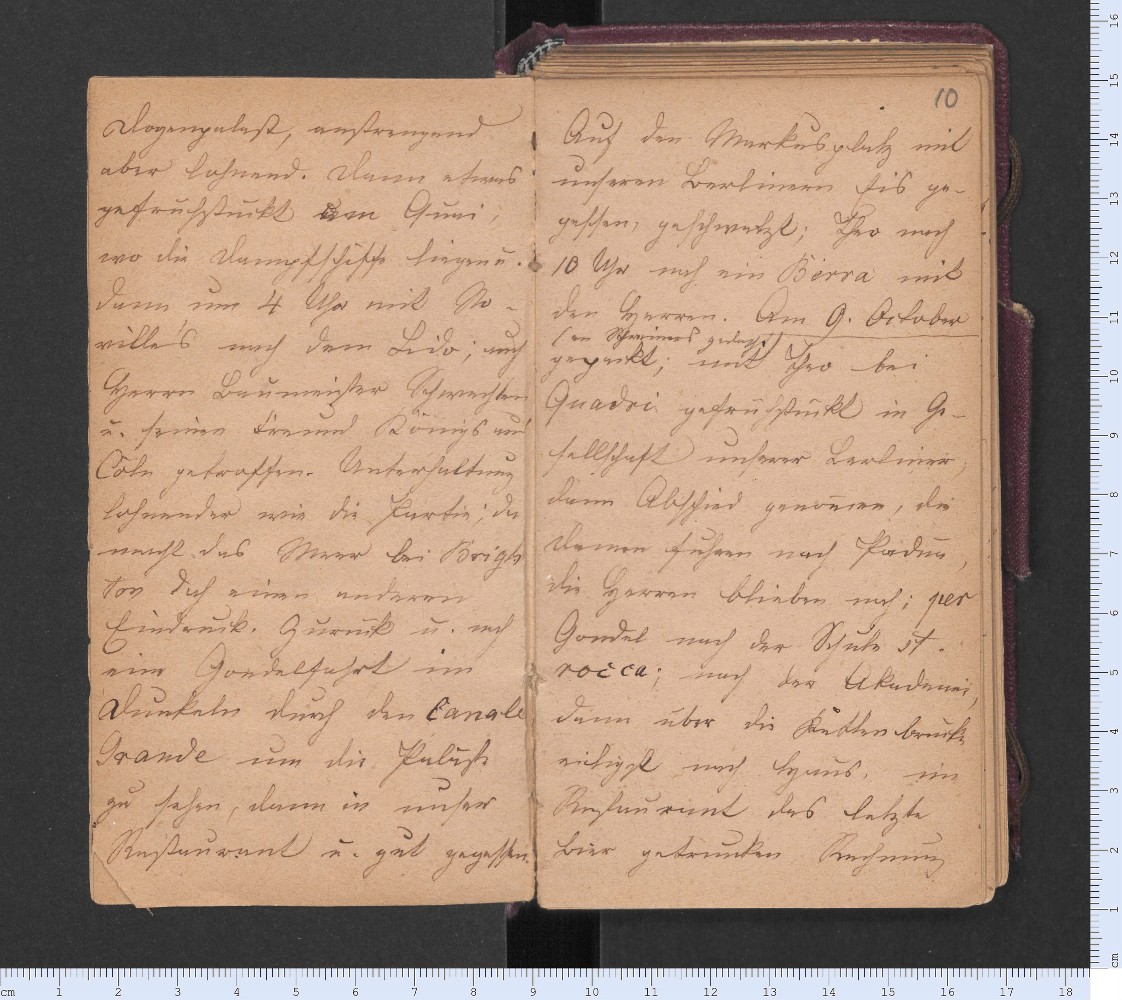 Dogenpalast, anstrengend
aber lohnend. Dann etwas
gefrühstückt am Quai,
wo die Dampfschiffe liegen u.
dann um 4 Uhr mit No-
ville's nach dem Lido; auch
Herrn Baumeister Schwechten
u. seinen Freund Königs aus
Cöln getroffen. Unterhaltung
lohnender wie die Partie; da
macht das Meer bei Brigh
ton doch einen anderen
Eindruck. Zurück u. noch
eine Gondelfahrt im
Dunkeln durch den Canale
Grande um die Paläste
zu sehen, dann in unser
Restaurant u. gut gegessen.
10
Auf den Markusplatz mit
unseren Berlinern Eis ge-
gessen, geschwatzt; Theo nach
10 Uhr noch ein Birra mit
den Herren. Am 9. October
(an Schreiners gedacht)
gepackt; mit Theo bei
Quadri gefrühstückt in Ge-
sellschaft unserer Berliner,
dann Abschied genom̄en, die
Damen fuhren nach Padua,
die Herren blieben noch; per
Gondel nach der Schule St.
rocca; nach der Akademie,
dann über die Kettenbrücke
eiligst nach Haus, im
Restaurant das letzte
Bier getrunken Rechnung